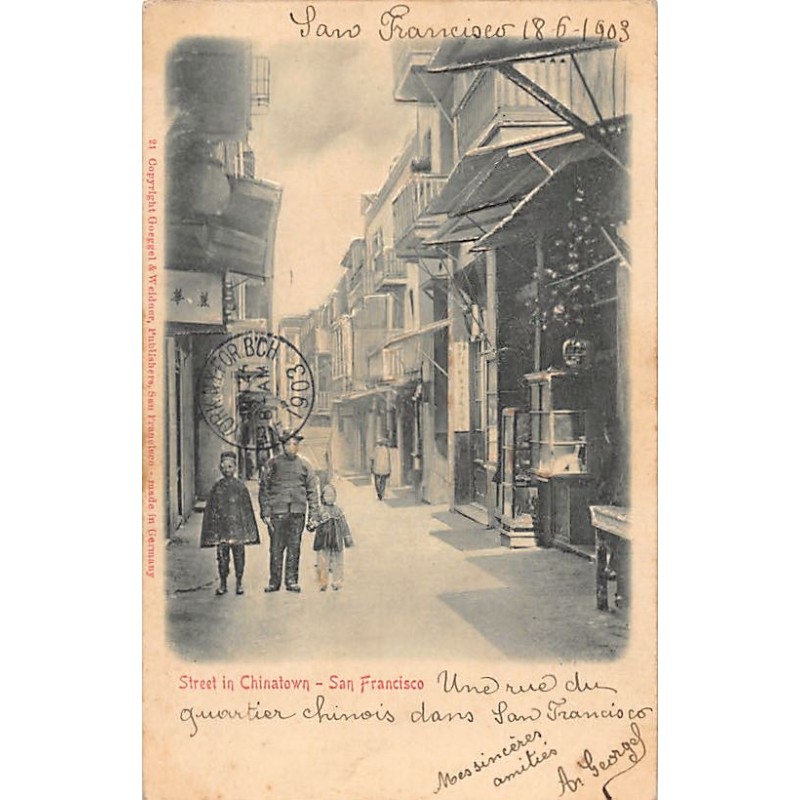 San Francisco 18-6-1903
21 Copyright Goeggel & Weidner, Publishers, San Francisco - made in Germany
華
1903
Street in Chinatown - San Francisco Une rue du
quartier chinois dans San Francisco
Mes sincères
amitiés
Georgel